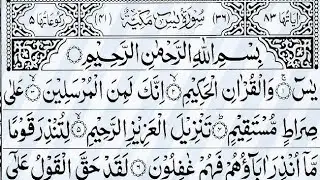 اٰیاتها ٨٣ (٣٦) سُوْرَةُ يٰسٓ مَكِّيَّةٌ (٤١) رکوعاتها ٥
بِسْمِ اللّٰهِ الرَّحْمٰنِ الرَّحِيْمِ
يٰسٓ ۝١ وَالْقُرْاٰنِ الْحَكِيْمِ ۝٢ اِنَّكَ لَمِنَ الْمُرْسَلِيْنَ ۝٣ عَلٰى
صِرَاطٍ مُّسْتَقِيْمٍ ۝٤ تَنْزِيْلَ الْعَزِيْزِ الرَّحِيْمِ ۝٥ لِتُنْذِرَ قَوْمًا
مَّاۤ اُنْذِرَ اٰبَآؤُهُمْ فَهُمْ غٰفِلُوْنَ ۝٦ لَقَدْ حَقَّ الْقَوْلُ عَلٰۤى